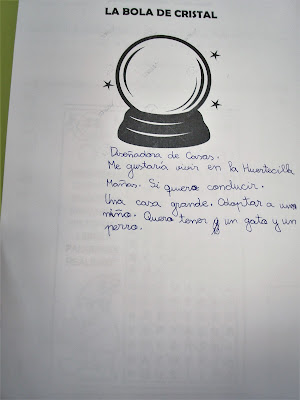 LA BOLA DE CRISTAL
Diseñadora de Casas.
Me gustaría vivir en la Huertecilla
Mañas. Si quiero conducir.
Una casa grande. Adoptar a un
niño. Quero tener a un gato y un
perro.